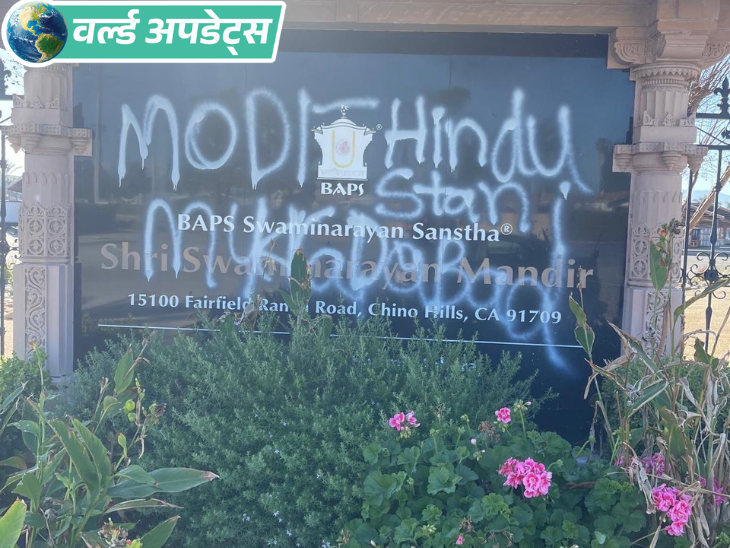 वर्ल्ड अपडेट्स
MODI Hindu
Stan
BAPS
BAPS Swaminarayan Sanstha®
Shri Swaminarayan Mandir
15100 Fairfield Ranch Road, Chino Hills, CA 91709